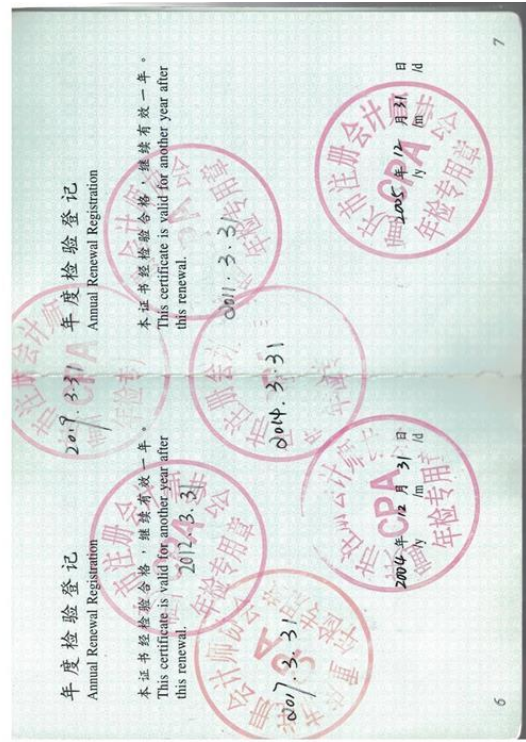 年度检验登记
Annual Renewal Registration
本证书经检验合格，继续有效一年。
This certificate is valid for another year after
this renewal.
2012.3.31
2017.3.31
CPA
年检专用章
2004年12月31日
/y /m /d
CPA
年检专用章
6
年度检验登记
Annual Renewal Registration
本证书经检验合格，继续有效一年。
This certificate is valid for another year after
this renewal.
2019.3.31
CPA
2011.3.31
年检专用章
2014.3.31
2005年12月31日
/y /m /d
市注册会计师
CPA
年检专用章
7